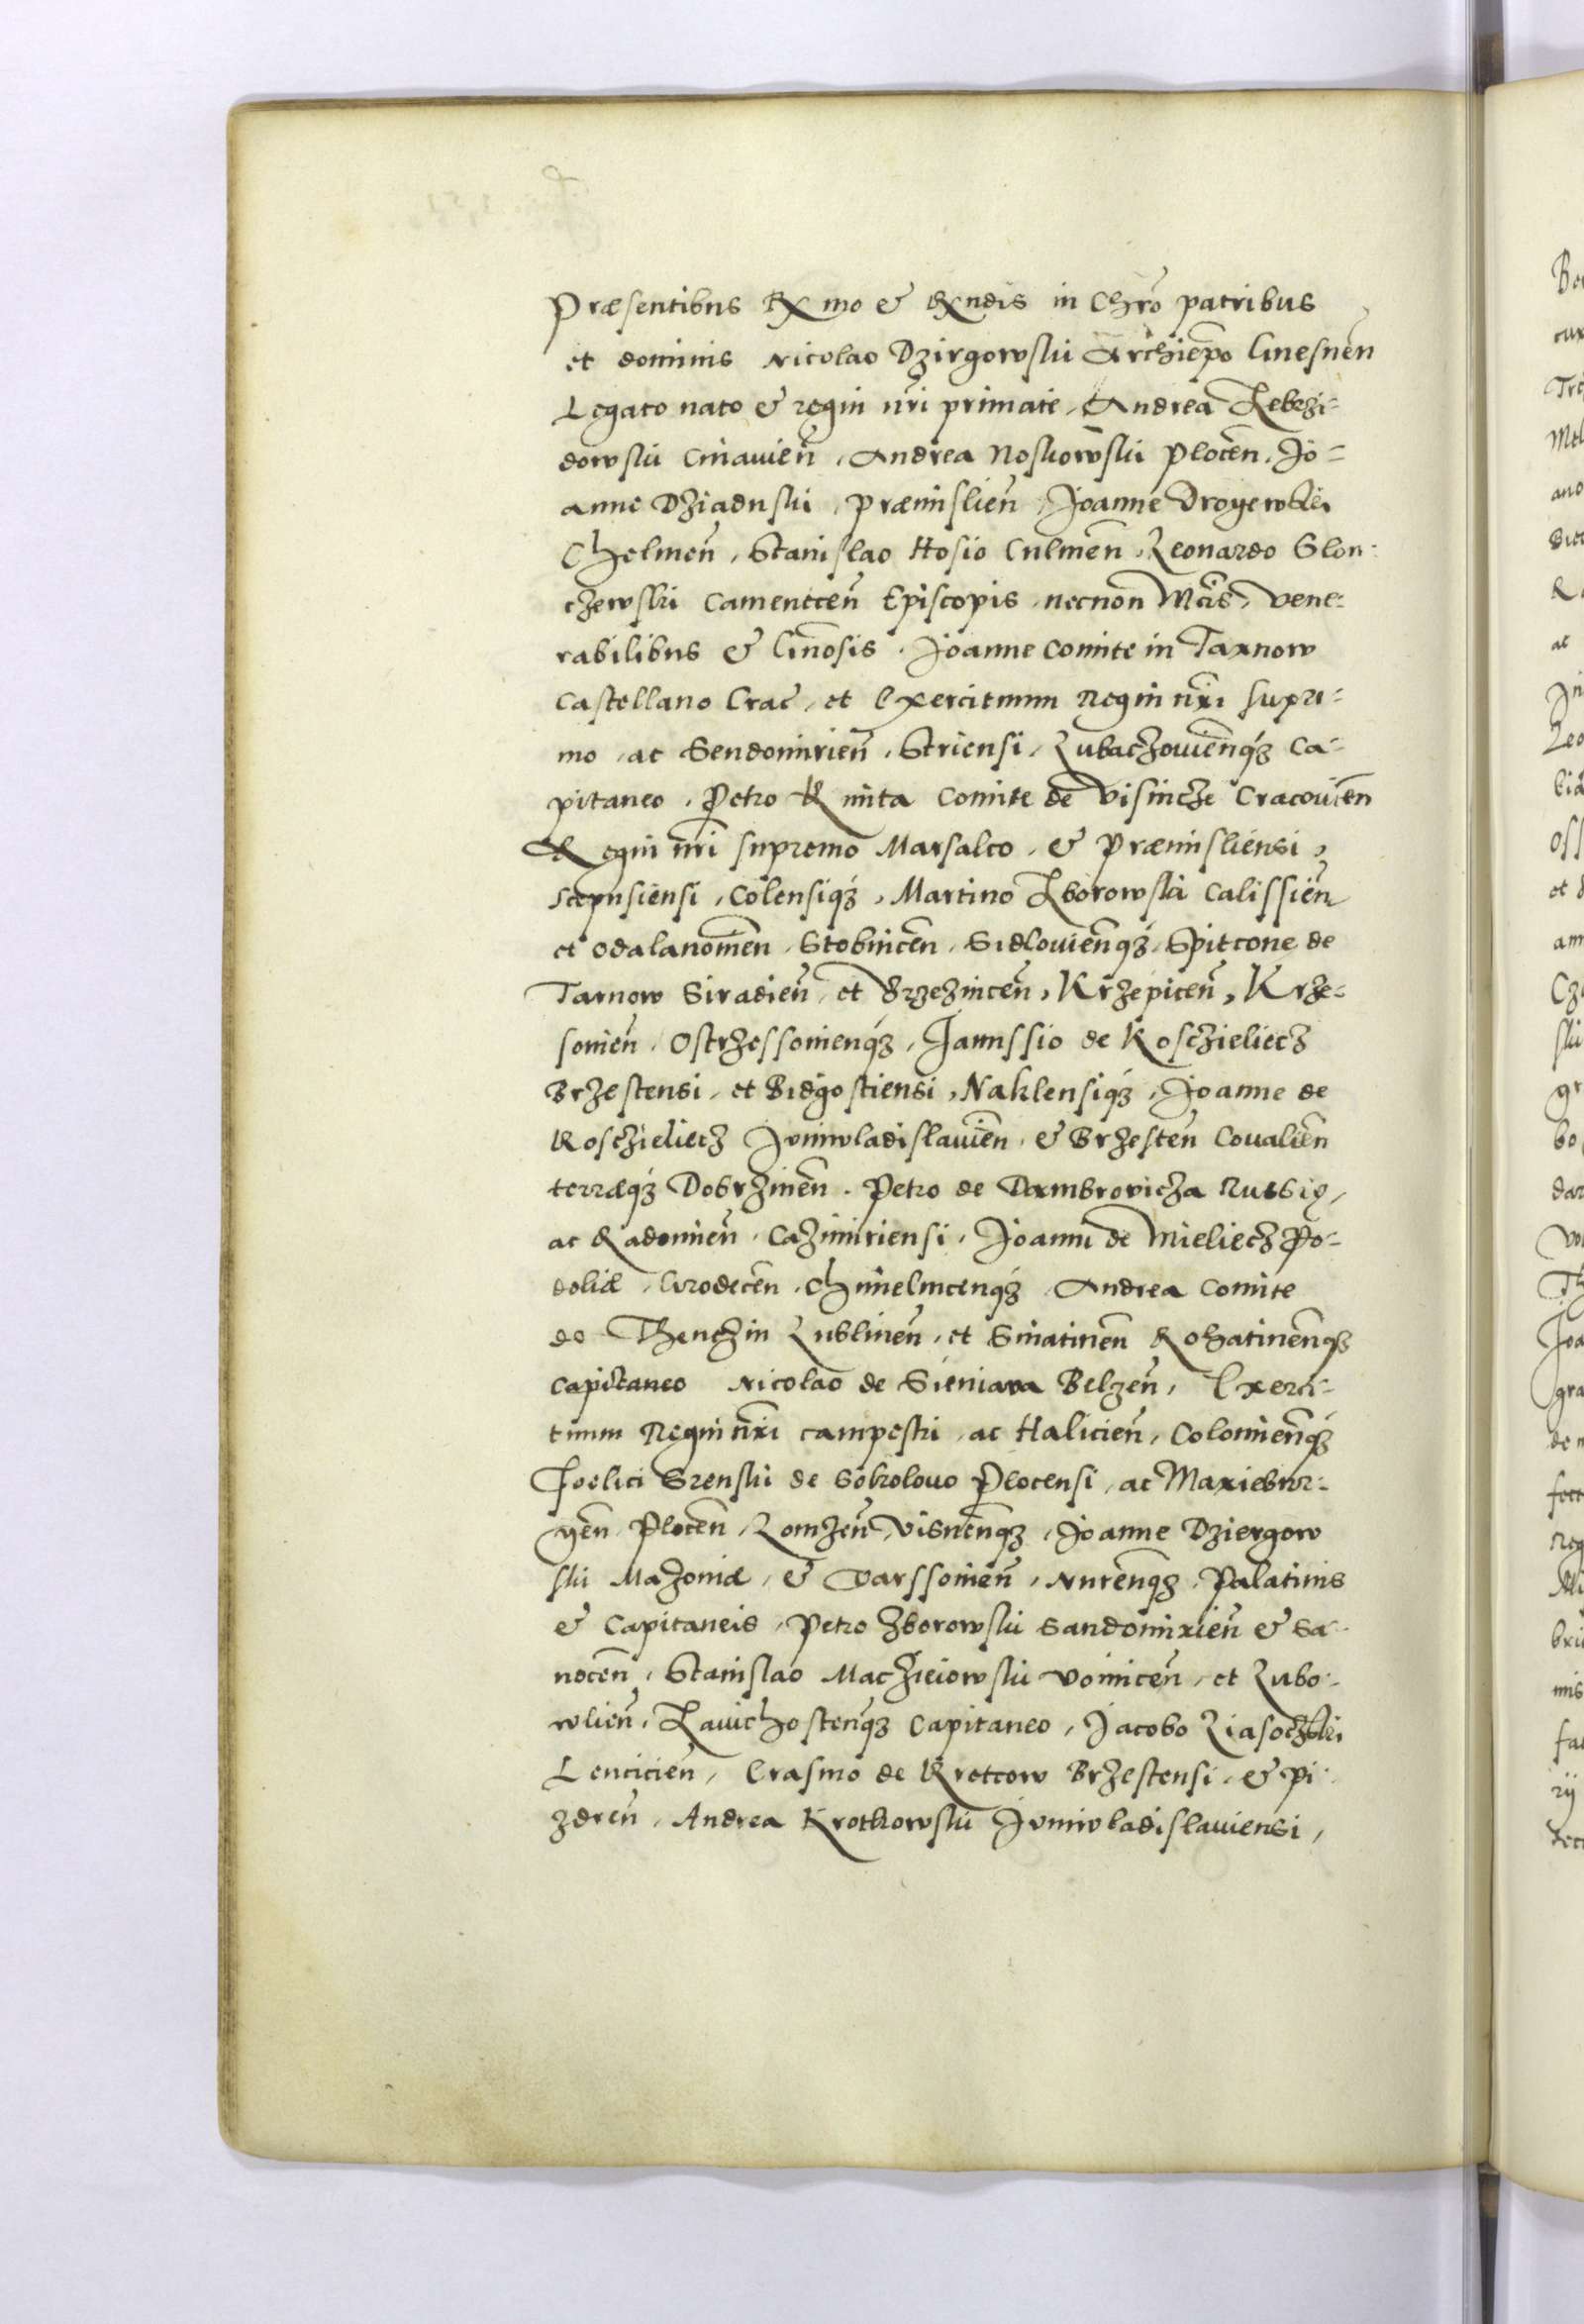 Præsentibus Rx mo & Rx ndis in Chrõ patribus
et dominis Nicolao Dzirgowski Archiepõ Gnesnen̄
Legato nato & regni nr̄i primate, Andrea Zebrzi=
dowski Cuiauien̄, Andrea Noskowski Plocen̄, Jo=
anne Dziaduski, Præmislien̄, Joanne Droyewski
Chelmen̄, Stanislao Hosio Culmen̄, Leonardo Slon=
czewski Camenecen̄ Episcopis, necnon Mcis, vene=
rabilibus & Gn̄osis. Joanne Comite in Tarnow
Castellano Crac̄, et Exercituum Regni nr̄i supre=
mo, ac Sendomirien̄, Striensi, Lubaczouien̄q3 Ca=
pitaneo, Petro Kmita Comite de Visnicze Cracouien̄
Regni nr̄i supremo Marsalco, & Præmisliensi,
Scepusiensi, Colensiq3, Martino Zborowski Calissien̄
et Odalanouien̄, Stobnicen̄, Sidlouien̄q3, Spitcone de
Tarnow Siradien̄, et Brzezincen̄, Krzepicen̄, Krze=
souien̄, Ostrzessouienq3, Janussio de Kosczieliecz
Brzestensi, et Bidgostiensi, Naklensiq3, Joanne de
Kosczieliecz Juniwladislauien̄, & Brzesten̄ Coualien̄
terræq3 Dobrzinen̄. Petro de Dambrovicza Russię,
ac Radomien̄, Cazimiriensi, Joanni de Mieliecz Po=
doliæ, Grodecen̄, Chmielnicenq3, Andrea Comite
de Thenczin Lublinen̄, et Sniatinen̄ Rohatinen̄q3
Capitaneo Nicolao de Sieniava Belzen̄, Exerci=
tuum Regni nr̄i campestri, ac Halicien̄, Colomien̄q3
Foelici Srenski de Sokolouo Plocensi, ac Mariebur=
gen̄ Plocen̄, Lomzen̄, Visnen̄q3, Joanne Dziergow
ski Mazouiæ, & Varssouien̄, Nuren̄q3, Palatinis
& Capitaneis, Petro Zborowski Sandomirien̄ & Sa=
nocen̄, Stanislao Maczieiowski Voinicen̄, et Lubo=
wlien̄, Zauichostenq3 Capitaneo, Jacobo Liasoczki
Lencicien̄, Erasmo de Kretcow Brzestensi, & Pi=
zdren̄, Andrea Krotkowski Juniwladislauiensi,